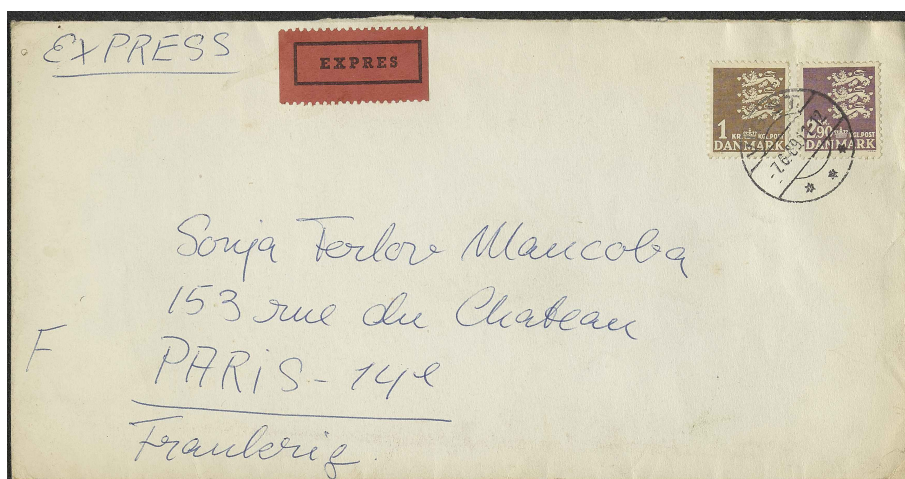 EXPRESS
EXPRES
1 KR. KGL.POST
DANMARK
2.90 KGL.POST
DANMARK
-7.6.69. 12
Sonja Ferlov Mancoba
153 rue du Chateau
F
PARiS - 14e
Frankrig